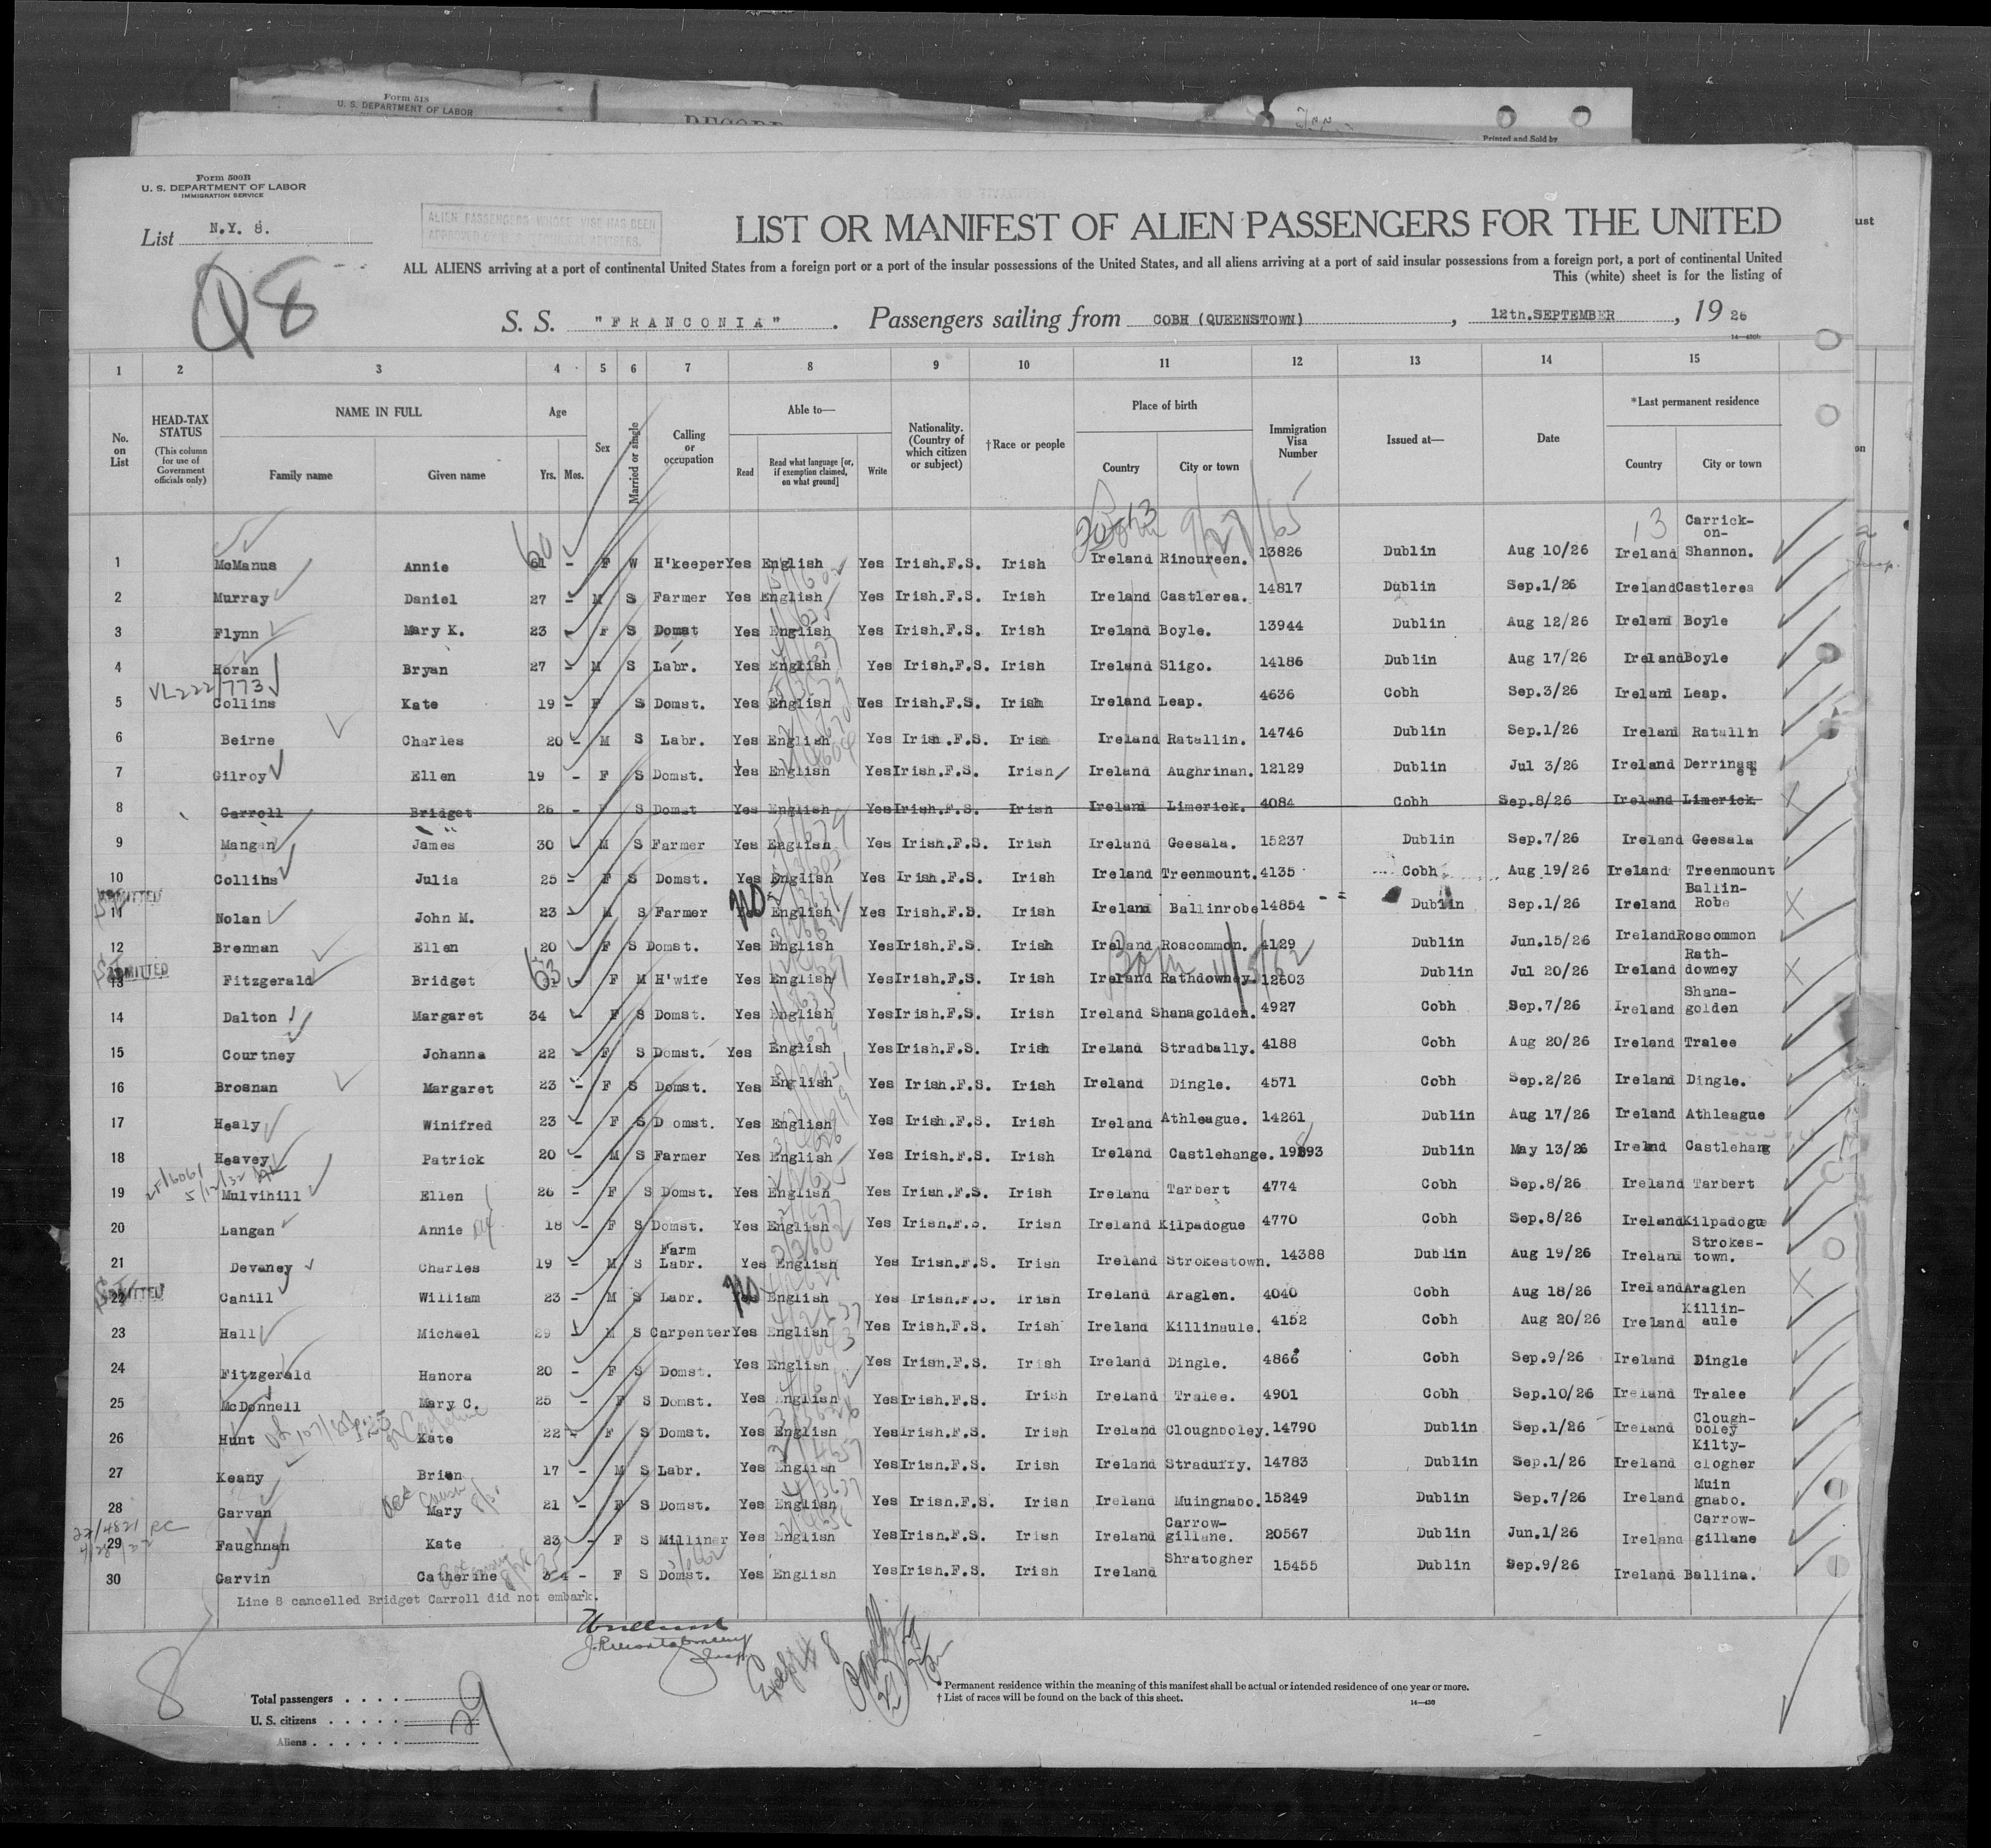 Form 518
U. S. DEPARTMENT OF LABOR
RECORD
Printed and Sold by
Form 500B
U. S. DEPARTMENT OF LABOR
IMMIGRATION SERVICE
List N.Y. 8.
ALIEN PASSENGERS WHOSE VISE HAS BEEN
Q8
LIST OR MANIFEST OF ALIEN PASSENGERS FOR THE UNITED
ALL ALIENS arriving at a port of continental United States from a foreign port or a port of the insular possessions of the United States, and all aliens arriving at a port of said insular possessions from a foreign port, a port of continental United
This (white) sheet is for the listing of
S. S. "FRANCONIA" . Passengers sailing from COBH (QUEENSTOWN) , 12th.SEPTEMBER , 19 26
1 2 3 4 5 6 7 8 9 10 11 12 13 14 15
No. on List
HEAD-TAX STATUS (This column for use of Government officials only)
NAME IN FULL Family name Given name
Age Yrs. Mos.
Sex
Married or single
Calling or occupation
Able to— Read Read what language [or, if exemption claimed, on what ground] Write
Nationality. (Country of which citizen or subject)
†Race or people
Place of birth Country City or town
Immigration Visa Number
Issued at—
Date
*Last permanent residence Country City or town
1 McManus Annie 61 - F W H'keeper Yes English Yes Irish.F.S. Irish Ireland Rincureen. 13826 Dublin Aug 10/26 Ireland Carrick-on-Shannon.
2 Murray Daniel 27 - M S Farmer Yes English Yes Irish.F.S. Irish Ireland Castlerea. 14817 Dublin Sep.1/26 Ireland Castlerea
3 Flynn Mary K. 23 - F S Domst Yes English Yes Irish.F.S. Irish Ireland Boyle. 13944 Dublin Aug 12/26 Ireland Boyle
4 Horan Bryan 27 - M S Labr. Yes English Yes Irish.F.S. Irish Ireland Sligo. 14186 Dublin Aug 17/26 Ireland Boyle
VL222/773
5 Collins Kate 19 - F S Domst. Yes English Yes Irish.F.S. Irish Ireland Leap. 4636 Cobh Sep.3/26 Ireland Leap.
6 Beirne Charles 20 - M S Labr. Yes English Yes Irish.F.S. Irish Ireland Ratallin. 14746 Dublin Sep.1/26 Ireland Ratallin
7 Gilroy Ellen 19 - F S Domst. Yes English Yes Irish.F.S. Irish Ireland Aughrinan. 12129 Dublin Jul 3/26 Ireland
8 Carroll Bridget 26 - F S Domst Yes English Yes Irish.F.S. Irish Ireland Limerick. 4084 Cobh Sep.8/26 Ireland Limerick.
9 Mangan James 30 - M S Farmer Yes English Yes Irish.F.S. Irish Ireland Geesala. 15237 Dublin Sep.7/26 Ireland Geesala
10 Collins Julia 25 - F S Domst. Yes English Yes Irish.F.S. Irish Ireland Treenmount. 4135 Cobh Aug 19/26 Ireland Treenmount
ADMITTED
11 Nolan John M. 23 - M S Farmer no English Yes Irish.F.S. Irish Ireland Ballinrobe 14854 Dublin Sep.1/26 Ireland Ballin-Robe
12 Brennan Ellen 20 - F S Domst. Yes English Yes Irish.F.S. Irish Ireland Roscommon. 4129 Dublin Jun.15/26 Ireland Roscommon
ADMITTED
13 Fitzgerald Bridget 63 F M H'wife Yes English Yes Irish.F.S. Irish Ireland Rathdowney. 12603 Dublin Jul 20/26 Ireland Rath-downey
14 Dalton Margaret 34 - F S Domst. Yes English Yes Irish.F.S. Irish Ireland Shanagolden. 4927 Cobh Sep.7/26 Ireland Shana-golden
15 Courtney Johanna 22 - F S Domst. Yes English Yes Irish.F.S. Irish Ireland Stradbally. 4188 Cobh Aug 20/26 Ireland Tralee
16 Brosnan Margaret 23 - F S Domst. Yes English Yes Irish.F.S. Irish Ireland Dingle. 4571 Cobh Sep.2/26 Ireland Dingle.
17 Healy Winifred 23 - F S Domst. Yes English Yes Irish.F.S. Irish Ireland Athleague. 14261 Dublin Aug 17/26 Ireland Athleague
18 Heavey Patrick 20 - M S Farmer Yes English Yes Irish.F.S. Irish Ireland Castlehange. Dublin May 13/26 Ireland Castlehang
19 Mulvihill Ellen 26 - F S Domst. Yes English Yes Irish.F.S. Irish Ireland Tarbert 4774 Cobh Sep.8/26 Ireland Tarbert
20 Langan Annie 18 - F S Domst. Yes English Yes Irish.F.S. Irish Ireland Kilpadogue 4770 Cobh Sep.8/26 Ireland Kilpadogue
21 Devaney Charles 19 - M S Farm Labr. Yes English Yes Irish.F.S. Irish Ireland Strokestown. 14388 Dublin Aug 19/26 Ireland Strokes-town.
ADMITTED
22 Cahill William 23 - M S Labr. no English Yes Irish.F.S. Irish Ireland Araglen. 4040 Cobh Aug 18/26 Ireland Araglen
23 Hall Michael 29 - M S Carpenter Yes English Yes Irish.F.S. Irish Ireland Killinaule. 4152 Cobh Aug 20/26 Ireland Killin-aule
24 Fitzgerald Hanora 20 - F S Domst. Yes English Yes Irish.F.S. Irish Ireland Dingle. 4866 Cobh Sep.9/26 Ireland Dingle
25 McDonnell Mary C. 25 - F S Domst. Yes English Yes Irish.F.S. Irish Ireland Tralee. 4901 Cobh Sep.10/26 Ireland Tralee
26 Hunt Kate 22 - F S Domst. Yes English Yes Irish.F.S. Irish Ireland Cloughboley. 14790 Dublin Sep.1/26 Ireland Clough-boley
27 Keany Brien 17 - M S Labr. Yes English Yes Irish.F.S. Irish Ireland Straduffy. 14783 Dublin Sep.1/26 Ireland Kilty-clogher
28 Garvan Mary 21 - F S Domst. Yes English Yes Irish.F.S. Irish Ireland Muingnabo. 15249 Dublin Sep.7/26 Ireland Muin gnabo.
29 Faughnan Kate 23 - F S Milliner Yes English Yes Irish.F.S. Irish Ireland Carrow-gillane. 20567 Dublin Jun.1/26 Ireland Carrow-gillane
30 Garvin Catherine - F S Domst. Yes English Yes Irish.F.S. Irish Ireland Shratogher 15455 Dublin Sep.9/26 Ireland Ballina.
Line 8 cancelled Bridget Carroll did not embark.
8
Total passengers
U. S. citizens
Aliens
29
* Permanent residence within the meaning of this manifest shall be actual or intended residence of one year or more.
† List of races will be found on the back of this sheet.
14—430